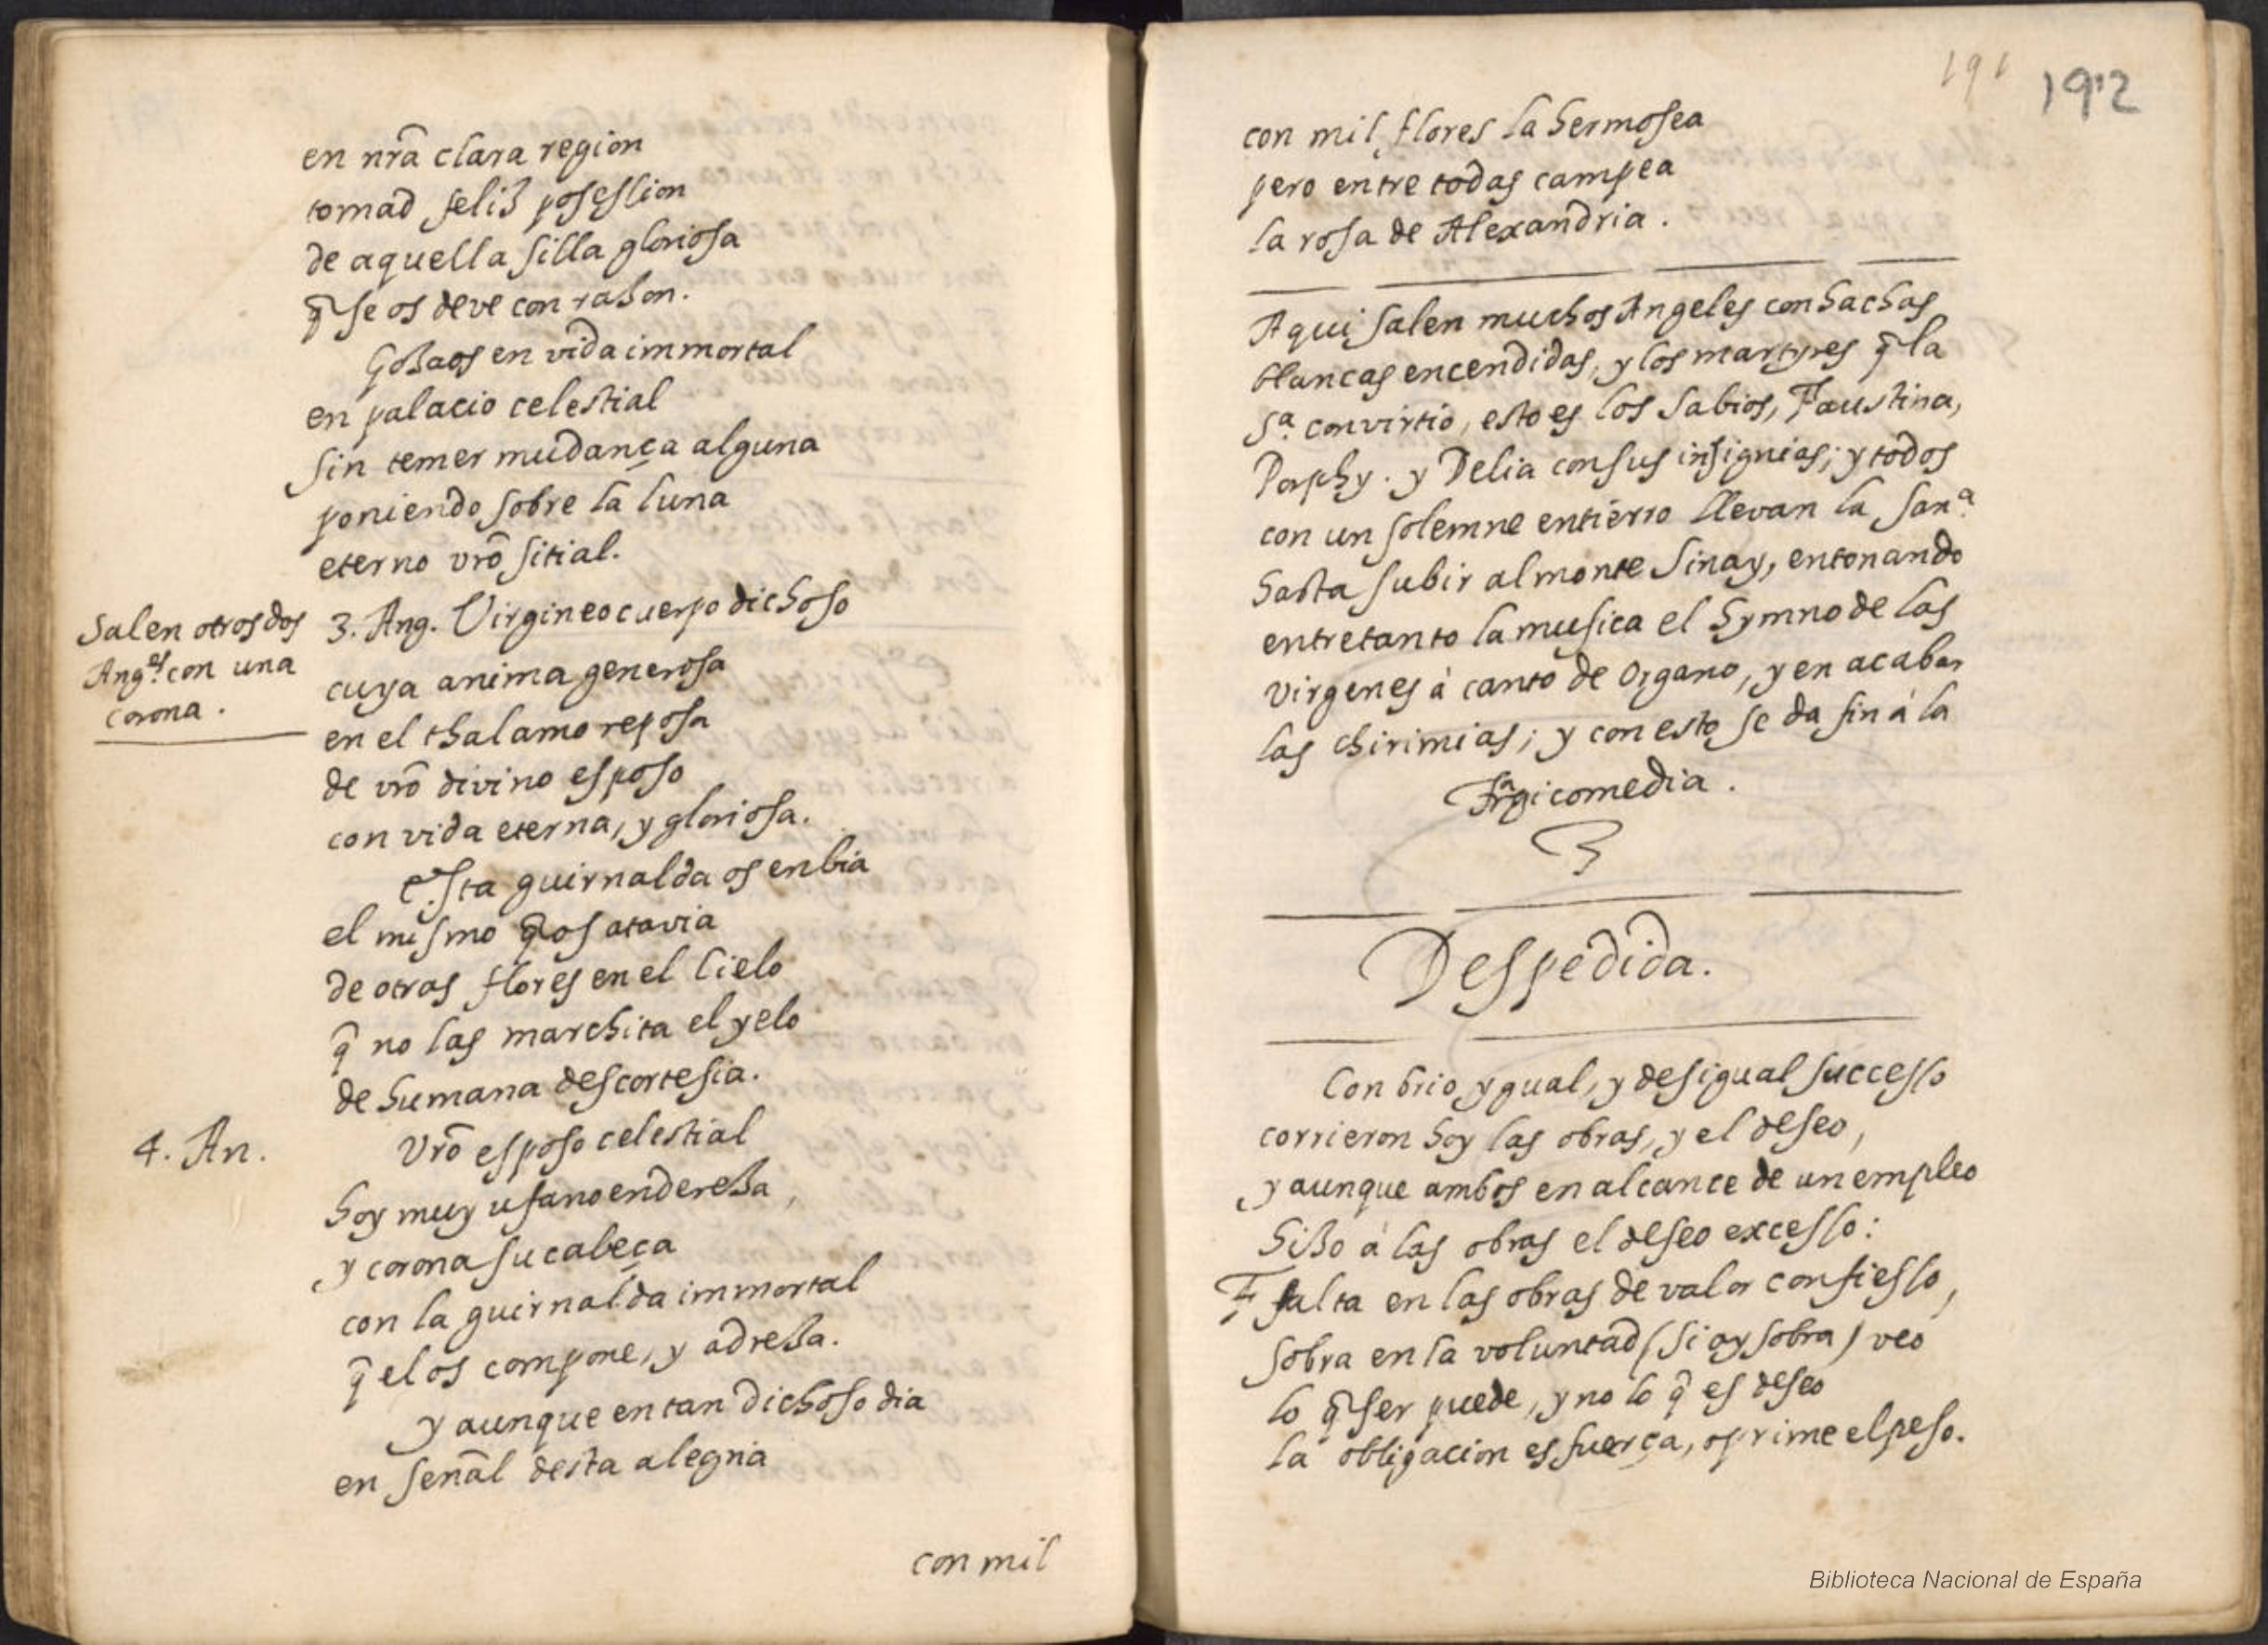 en nr̃a clara region
tomad feliz posession
de aquella silla gloriosa
q̃ se os deve con razon.
Gozaos en vida immortal
en palacio celestial
sin temer mudança alguna
poniendo sobre la luna
eterno vr̃o sitial.
Salen otros dos
Ang.es con una
corona.
3. Ang. Virgineo cuerpo dichoso
cuya anima generosa
en el thalamo reposa
de vr̃o divino esposo
con vida eterna, y gloriosa.
Esta guirnalda os enbia
el mismo q̃ os atavia
de otras flores en el Cielo
q̃ no las marchita el yelo
de humana descortesia.
4. An.
Vr̃o esposo celestial
hoy muy ufano endereza,
y corona su cabeça
con la guirnalda immortal
q̃ el os compone, y adreza.
y aunque en tan dichoso dia
en señal desta alegria
con mil
191 192
con mil flores la hermosea
pero entre todas campea
la rosa de Alexandria.
Aqui salen muchos Angeles con hachas
blancas encendidas, y los martyres q̃ la
S.a convirtio, esto es los Sabios, Faustina,
Porphy. y Delia con sus insignias; y todos
con un solemne entierro llevan la San.a
hasta subir al monte Sinay, entonando
entretanto la musica el hymno de las
virgenes à canto de Organo, y en acabar
las chirimias; y con esto se da fin à la
Tragicomedia.
Despedida.
Con brio ygual, y desigual successo
corrieron hoy las obras, y el deseo,
y aunque ambos en alcance de un empleo
hizo à las obras el deseo excesso:
Falta en las obras de valor confiesso,
sobra en la voluntad (si ay sobra) veo
lo q̃ ser puede, y no lo q̃ es deseo
la obligacion es fuerça, oprime el peso.
Biblioteca Nacional de España